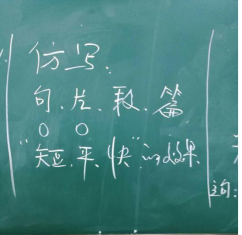 仿写:
句、片、段、篇
○ ○
"短、平、快"的效果